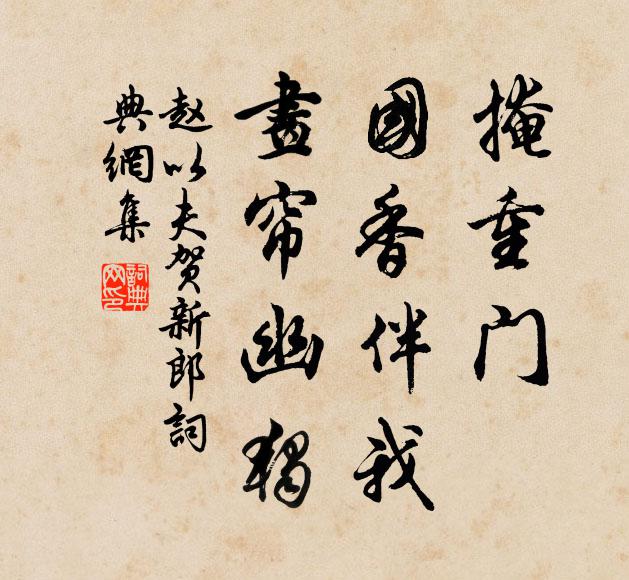 掩重门
國香伴我
畫帘幽獨
赵以夫贺新郎詞
典網集
詞典
网印